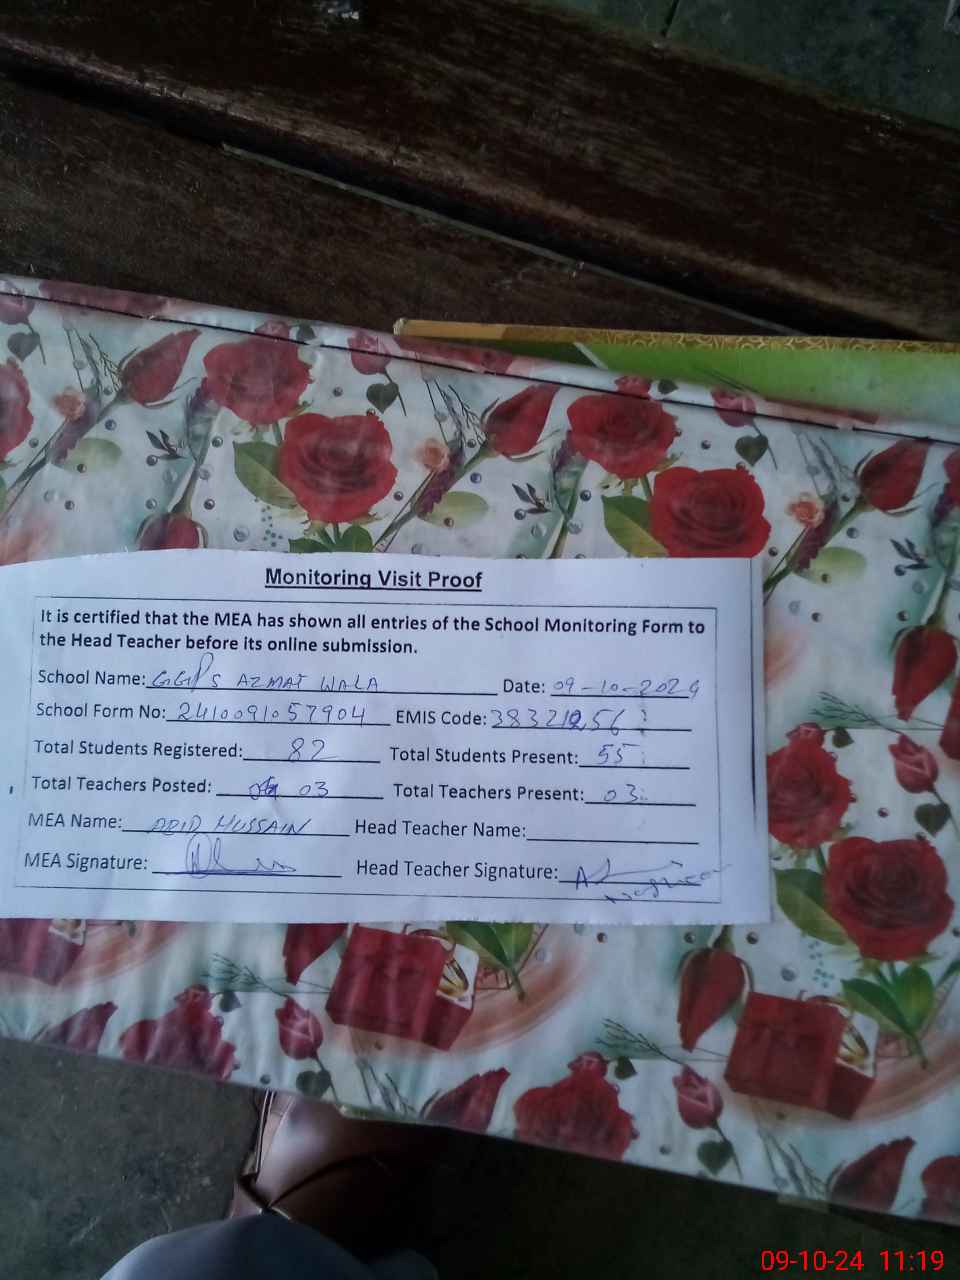 Monitoring Visit Proof
It is certified that the MEA has shown all entries of the School Monitoring Form to
the Head Teacher before its online submission.
School Name: GGPS AZMAT WALA Date: 09-10-2024
School Form No: 2410091057904 EMIS Code:
Total Students Registered: 82 Total Students Present: 55
Total Teachers Posted: 03 Total Teachers Present: 03
MEA Name: HUSSAIN Head Teacher Name:
MEA Signature: Head Teacher Signature:
09-10-24 11:19